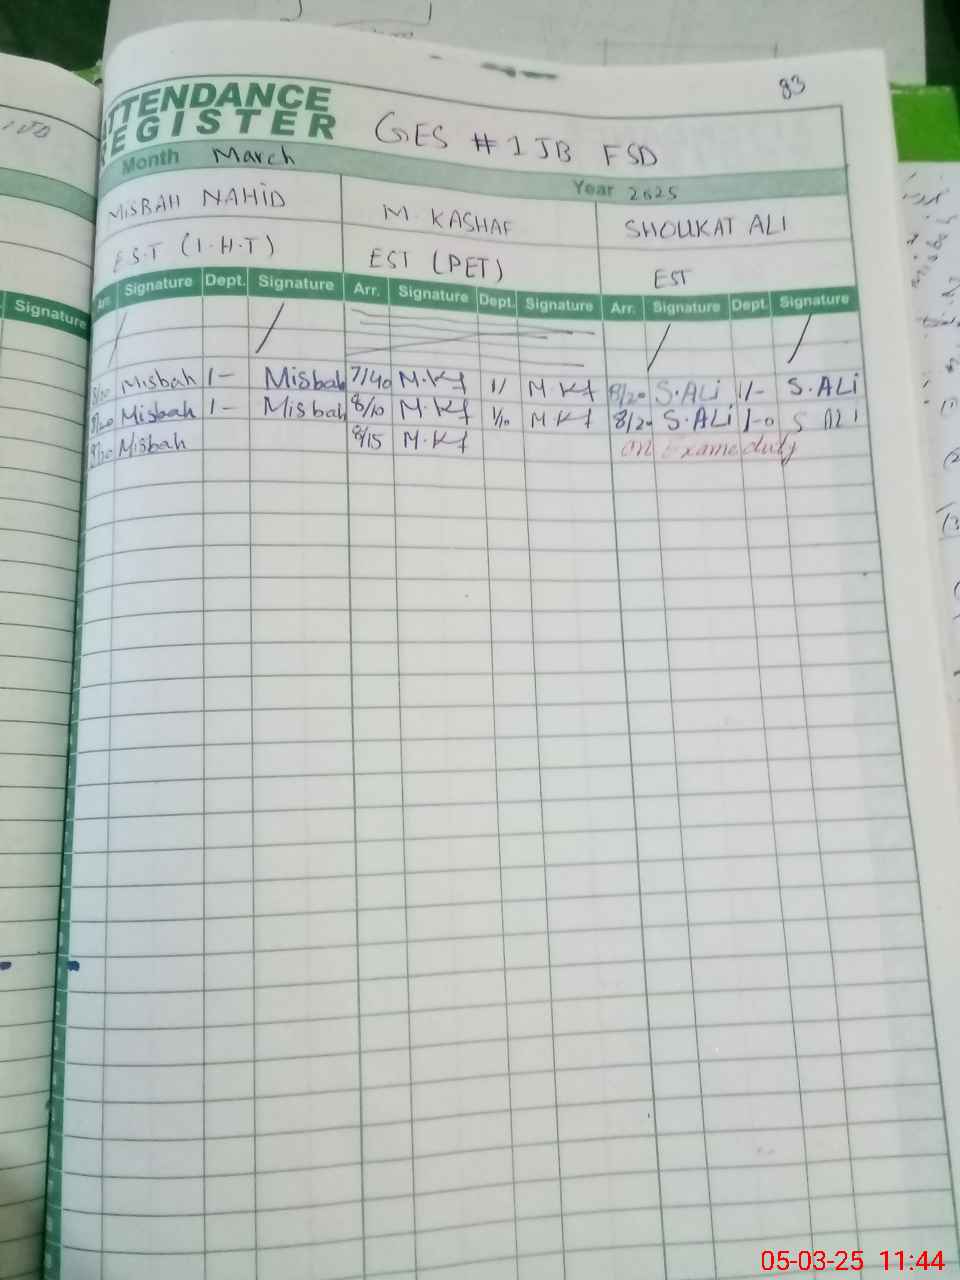 83
ATTENDANCE
REGISTER
GES # 1 JB FSD
Month March
Year 2025
MISBAH NAHID M. KASHAF SHOUKAT ALI
E.S.T (I.H.T) EST (PET) EST
Signature Arr. Signature Dept. Signature Arr. Signature Dept. Signature Arr. Signature Dept. Signature
8/20 Misbah 1- Misbah 7/40 M.Kf 1/ M Kf 8/20 S.ALi 1/- S.ALi
8/20 Misbah 1- Misbah 8/10 M.Kf 1/10 M Kf 8/20 S.ALi 1-0 S ALI
8/20 Misbah 8/15 M.Kf on Exame duty
05-03-25 11:44